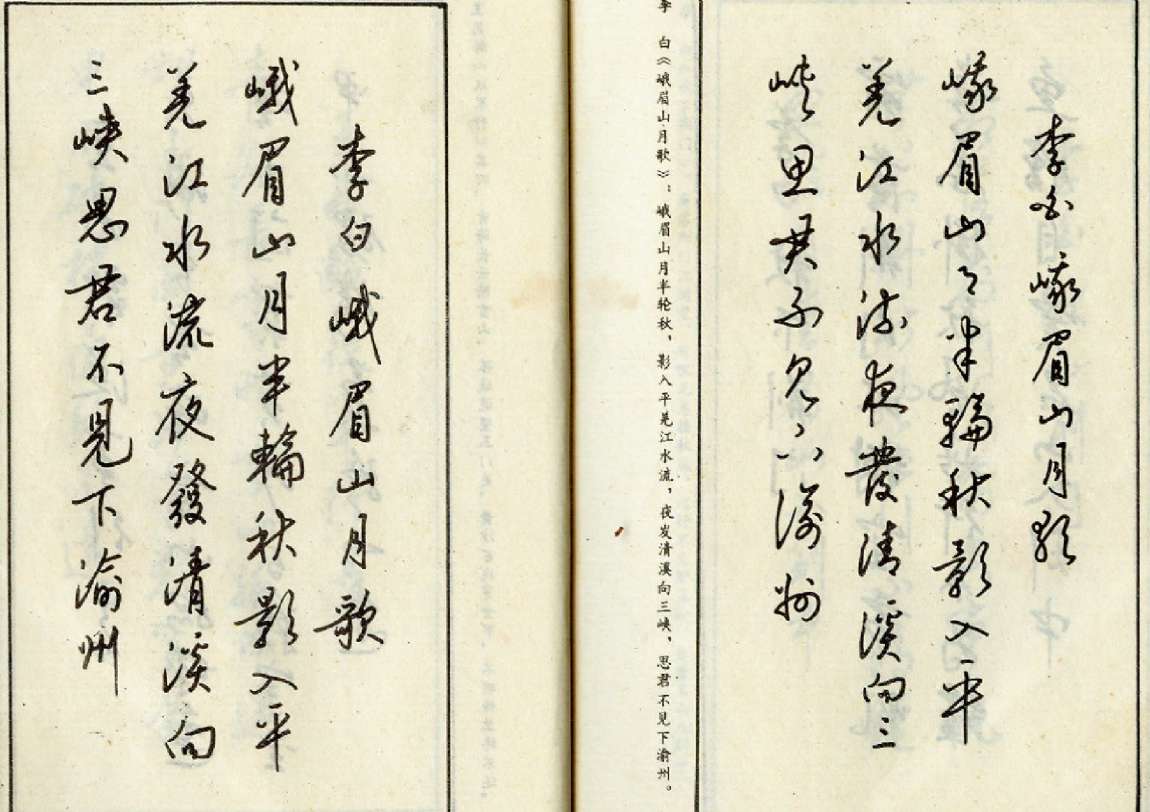 李白峨眉山月歌
峨眉山々半輪秋影入平
羌江水流夜發清溪向三
峡思君不見下渝州
李 白《峨眉山月歌》：峨眉山月半轮秋，影入平羌江水流，夜发清溪向三峡，思君不见下渝州。
李白峨眉山月歌
峨眉山月半輪秋影入平
羌江水流夜發清溪向
三峽思君不見下渝州